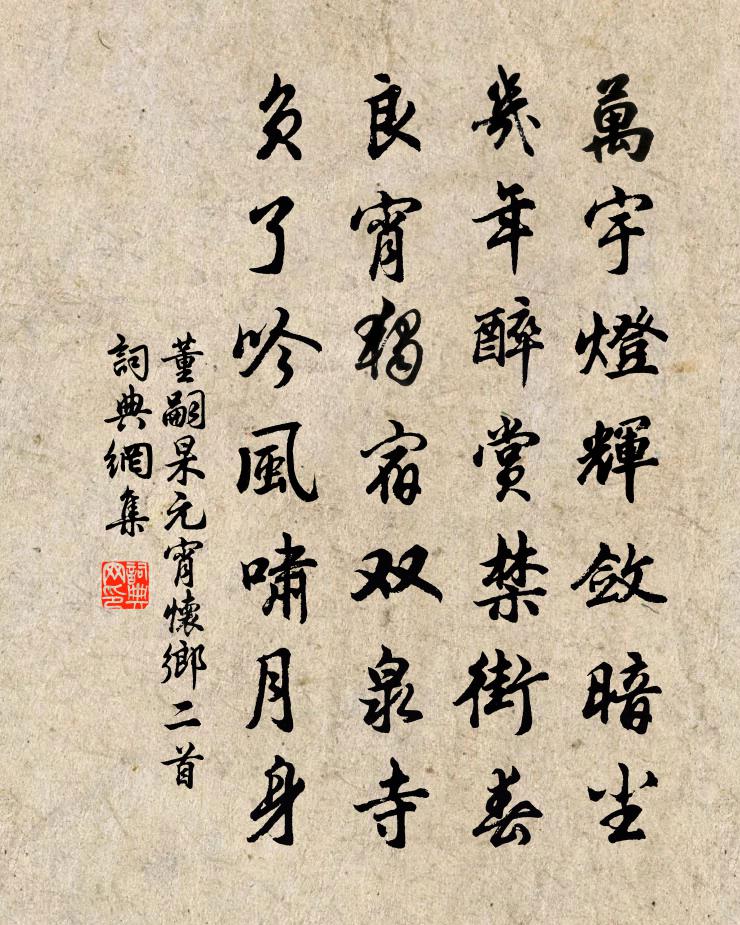 萬宇燈輝斂暗尘
幾年醉賞禁街春
良宵獨宿双泉寺
負了吟風嘯月身
董嗣杲元宵懷鄉二首
詞典網集
詞典网印